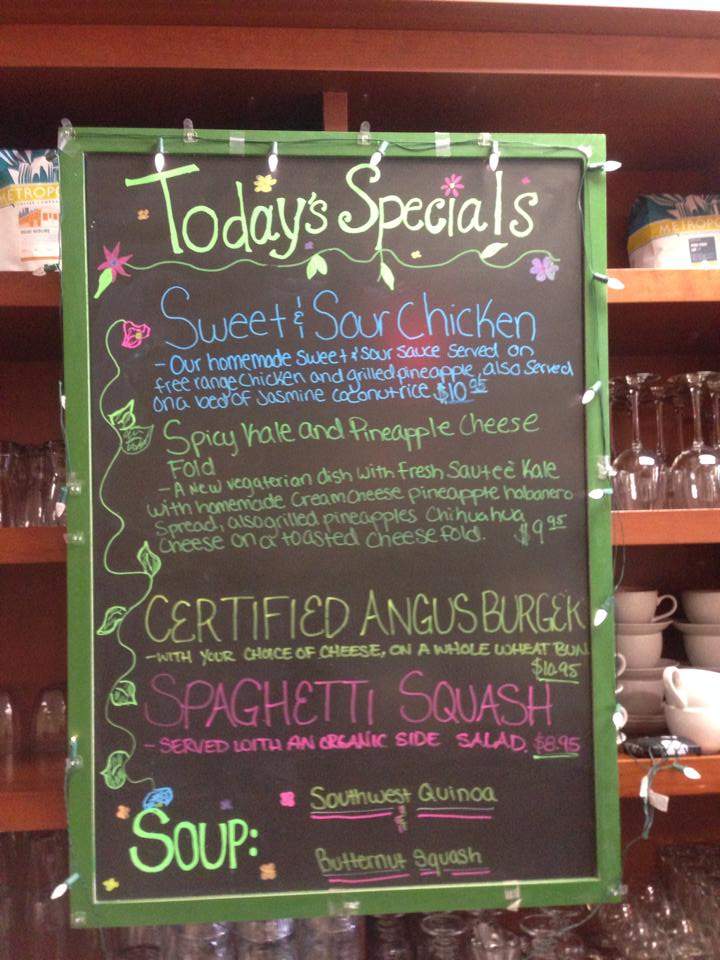 Today's Specials
METROP
METROP
Sweet & Sour Chicken
- Our homemade sweet & sour sauce served on
free range chicken and grilled pineapple, also served
on a bed of Jasmine coconut rice $10.95
Spicy Kale and Pineapple Cheese
Fold
- A new vegaterian dish with fresh Sauteè Kale
with homemade Creamcheese pineapple habanero
Spread, also grilled pineapples Chihuahua
Cheese on a toasted cheese fold. $9.95
CERTIFIED ANGUS BURGER
- WITH YOUR CHOICE OF CHEESE, ON A WHOLE WHEAT BUN
$10.95
SPAGHETTI SQUASH
- SERVED WITH AN ORGANIC SIDE SALAD. $8.95
Southwest Quinoa
&
SOUP:
Butternut Squash